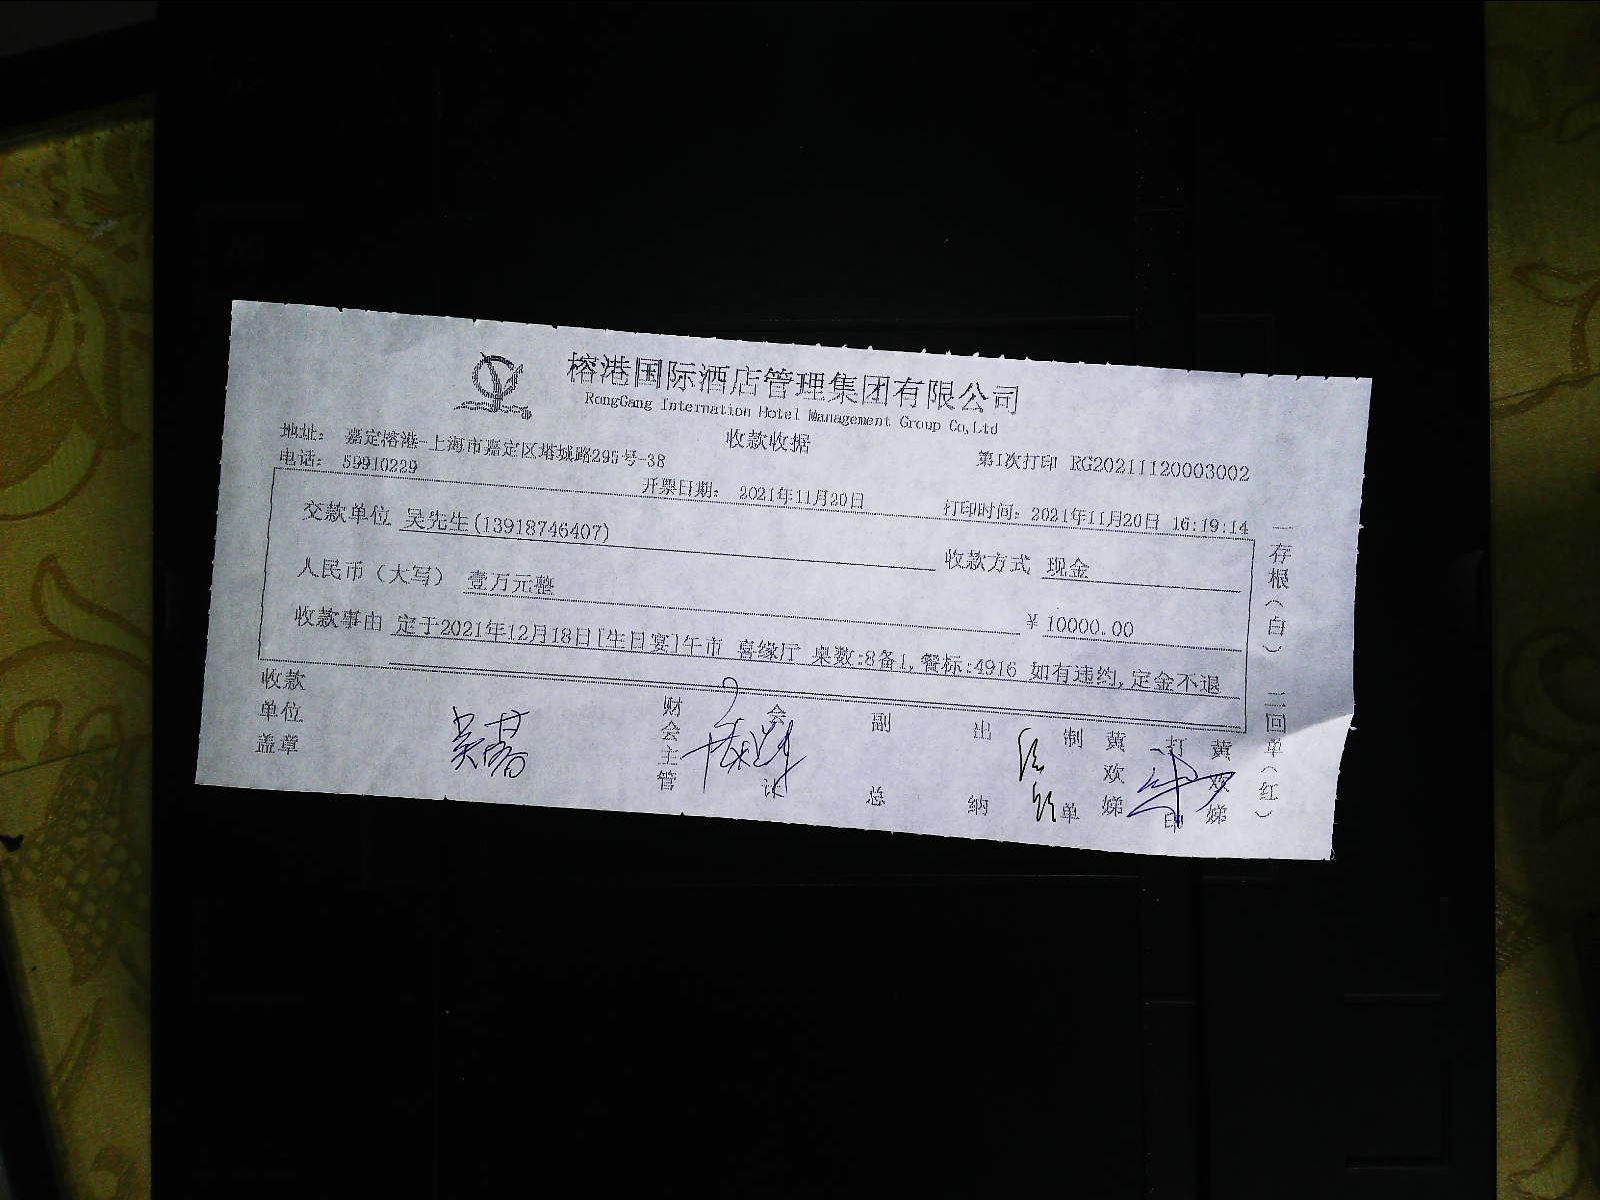 榕港国际酒店管理集团有限公司
RongGang Internation Hotel Management Group Co,Ltd
收款收据
地址: 嘉定榕港-上海市嘉定区塔城路295号-38
第1次打印 RG20211120003002
电话: 59910229
开票日期: 2021年11月20日
打印时间: 2021年11月20日 16:19:14
交款单位 吴先生(13918746407)
收款方式 现金
人民币（大写） 壹万元整
¥ 10000.00
收款事由 定于2021年12月18日[生日宴]午市 喜缘厅 桌数:8备1,餐标:4916 如有违约,定金不退
收款单位盖章
财会主管
会计
副总
出纳
制单
黄欢娣
打印
黄欢娣
一存根（白）
二回单（红）